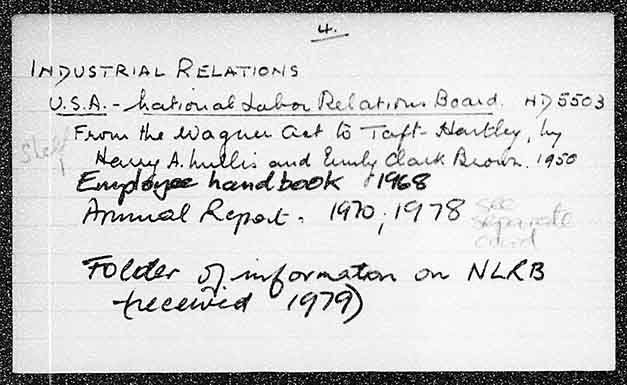 4.
INDUSTRIAL RELATIONS
U.S.A. - National Labor Relations Board. HD 5503
From the Wagner Act to Taft-Hartley, by
Harry A. Millis and Emily Clark Brown. 1950
Shelf 1
Employee handbook 1968
Annual Report. 1970; 1978 see separate card
Folder of information on NLRB
(received 1979)